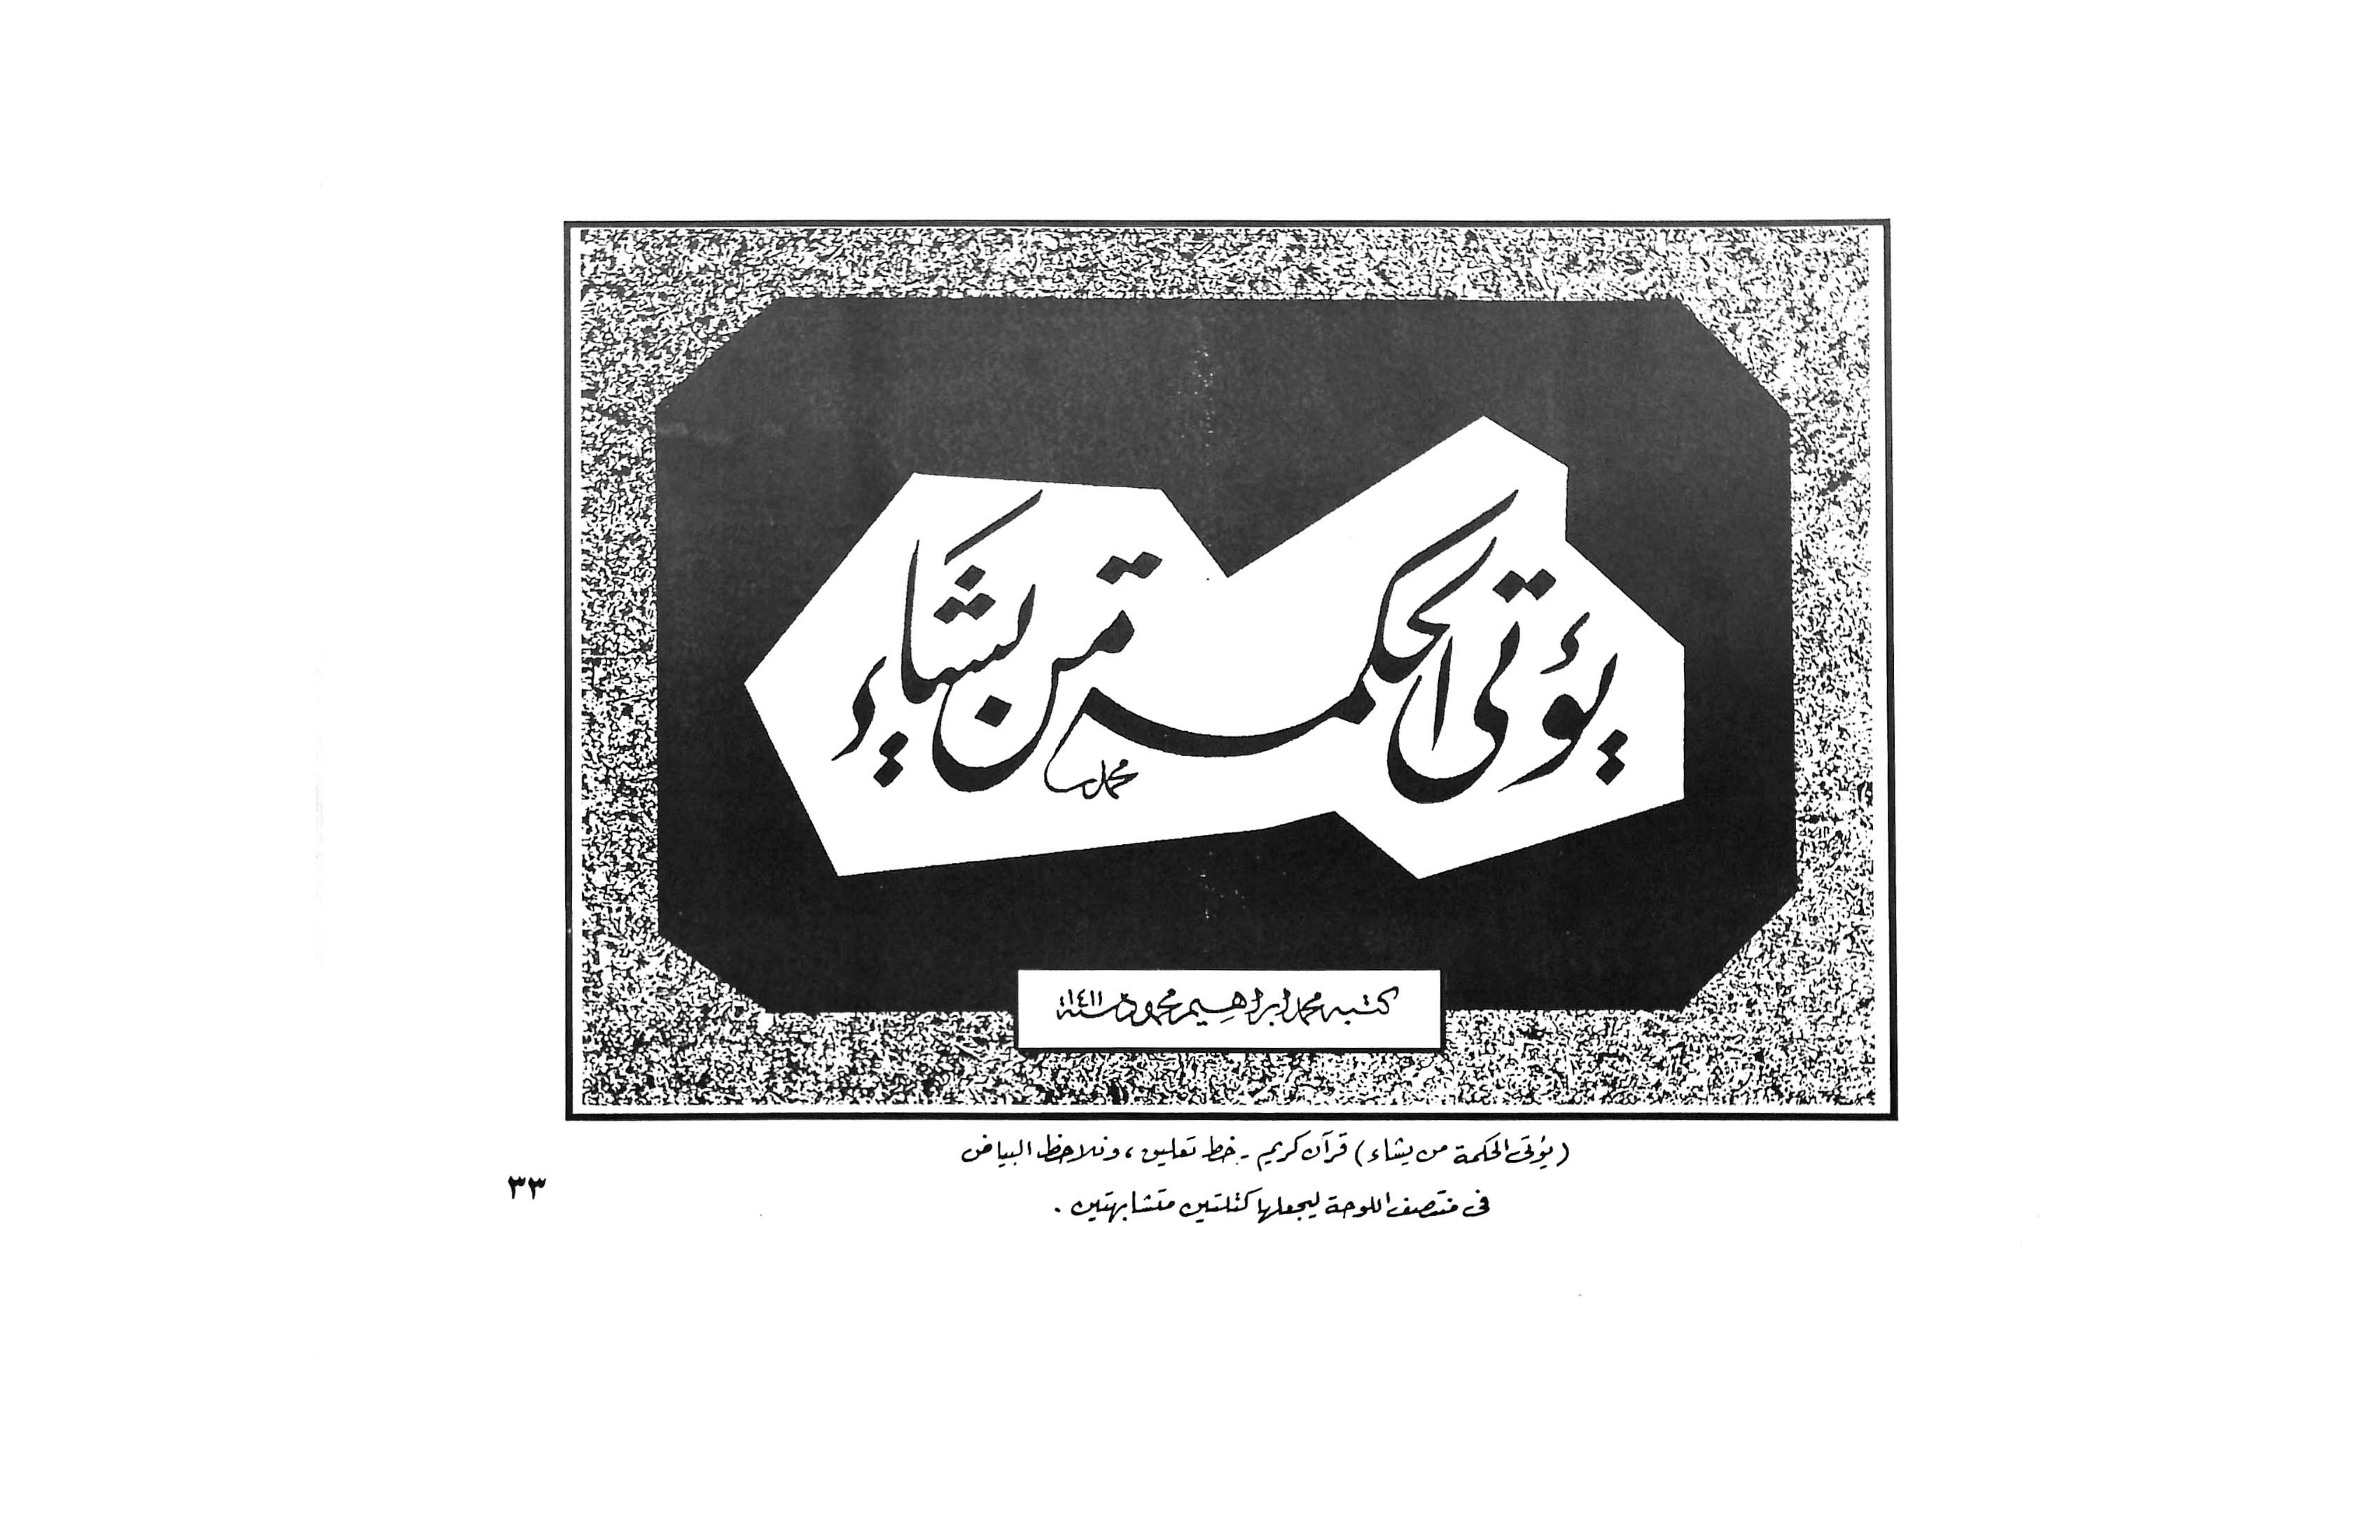 يؤتى الحكمة من يشاء
محمد
كتبه محمد ابراهيم محمود سنة ١٤١١
(يؤتى الحكمة من يشاء) قرآن كريم - خط تعليق، ونلاحظ البياض
فى منتصف اللوحة ليجعلها كتلتين متشابهتين .
٣٣